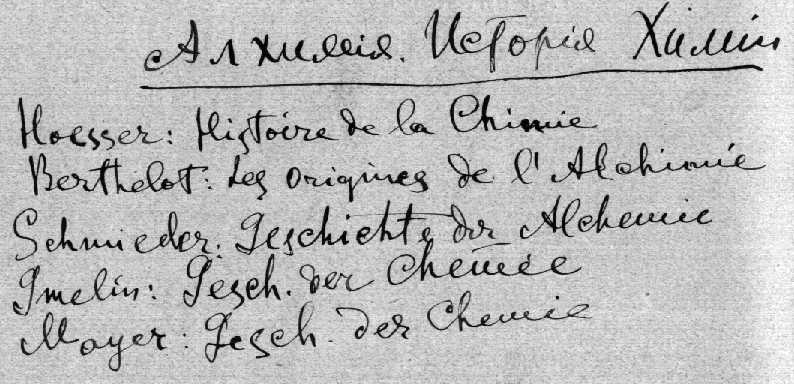 Алхимія. Исторія Химіи
Hoesser: Histoire de la Chimie
Berthelot: Les origines de l'Alchimie
Schmieder: Geschichte der Alchemie
Gmelin: Gesch. der Chemie
Mayer: Gesch. der Chemie